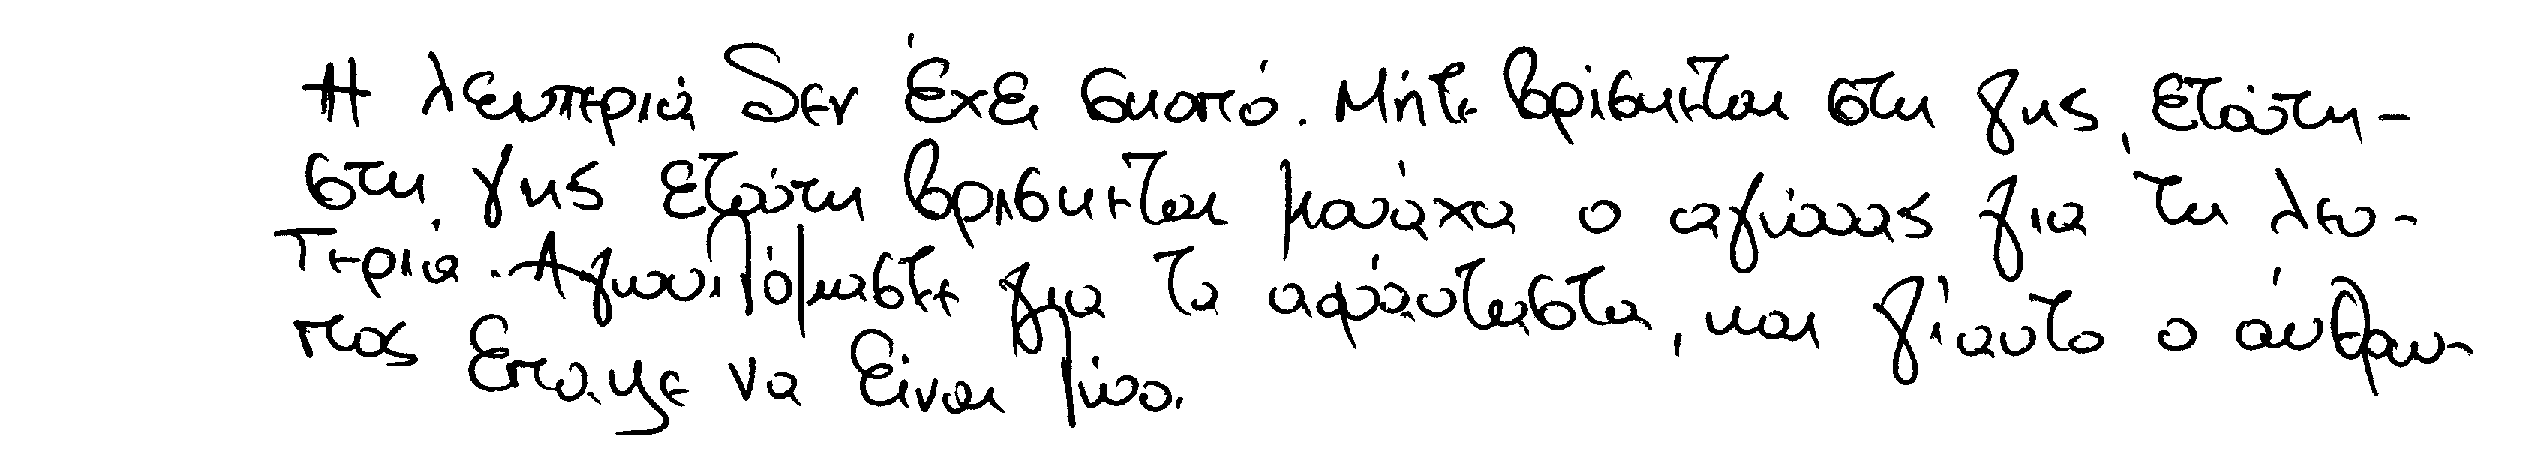 Η λευτεριά δεν έχει σκοπό. Μήτε βρίσκεται στη γης, ετούτη-
στη γης ετούτη βρίσκεται μονάχα ο αγώνας για τη λευ-
τεριά. Αγωνιζόμαστε για το αφάνταστα, και γι'αυτο ο άνθρω-
πος έπαψε να είναι ζώο.